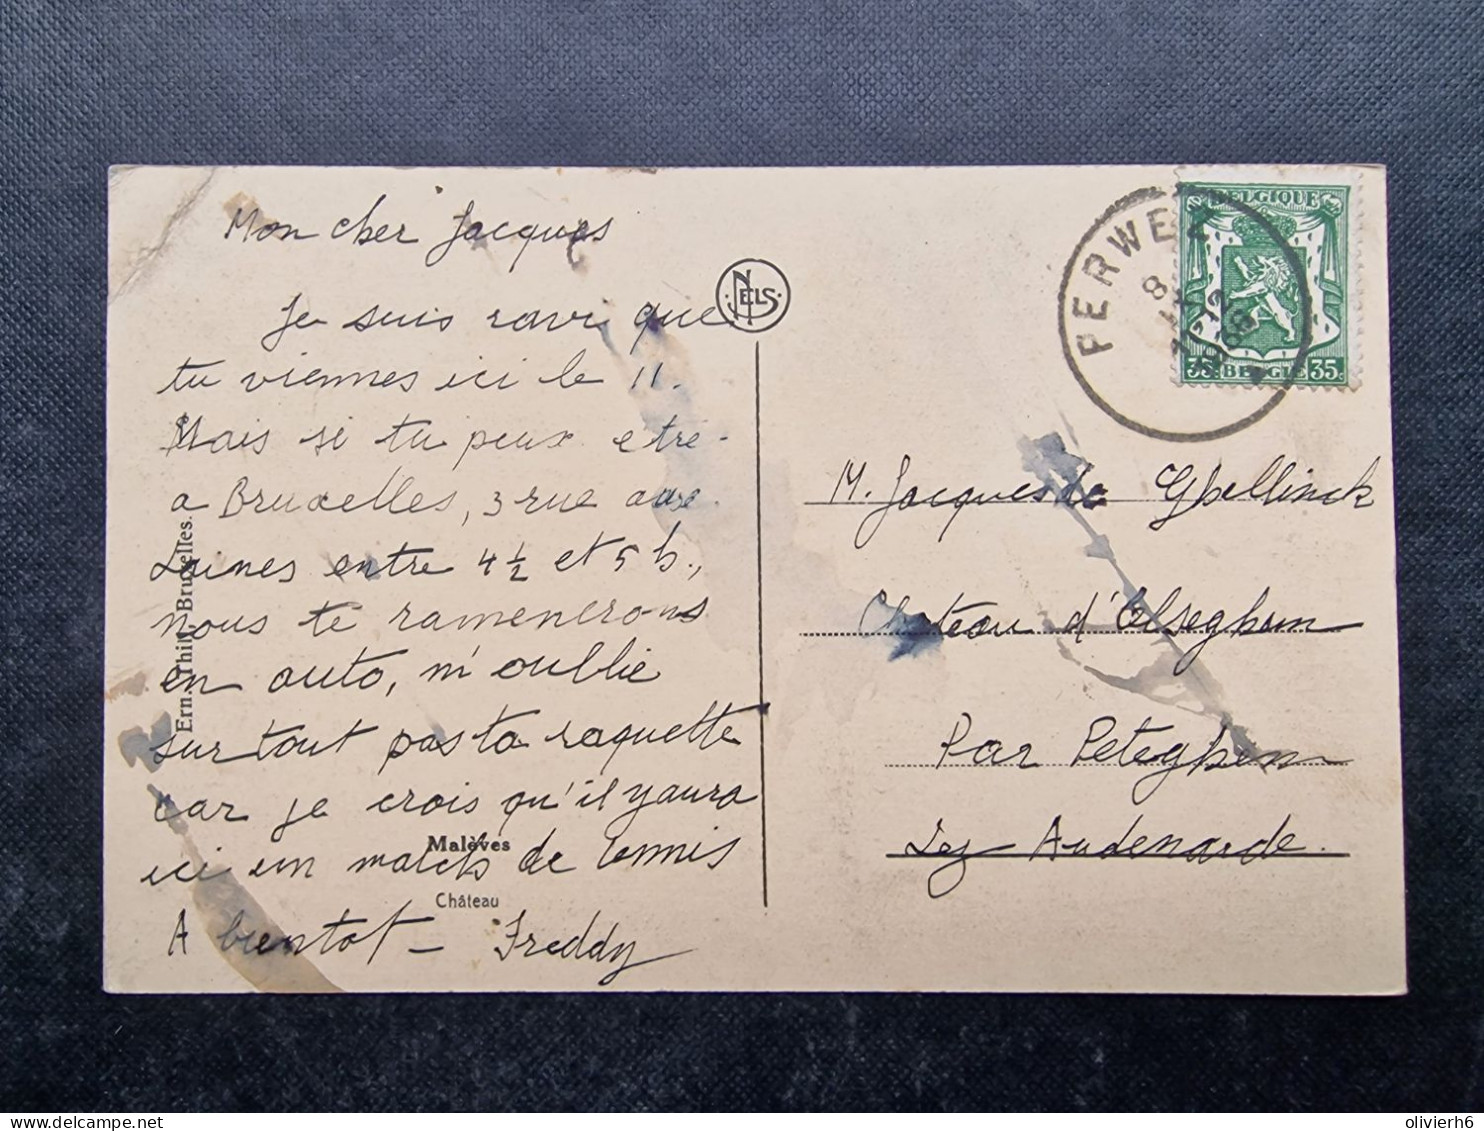 Mon cher Jacques
Je suis ravi que
tu viennes ici le 11.
Mais si tu peux etre
a Bruxelles, 3 rue aux
Laines entre 4½ et 5 h.,
nous te ramenerons
en auto, n'oublie
surtout pas ta raquette
car je crois qu'il y aura
ici un match de tennis
A bientot - Freddy
Ern. Thill, Bruxelles.
Malèves
Château
NELS
PERWEZ
8
12
BELGIQUE
35. BELGIE 35.
M. Jacques de Ghellinck
Chateau d'Elseghem
Par Peteghem
Lez Audenarde.
olivierh6